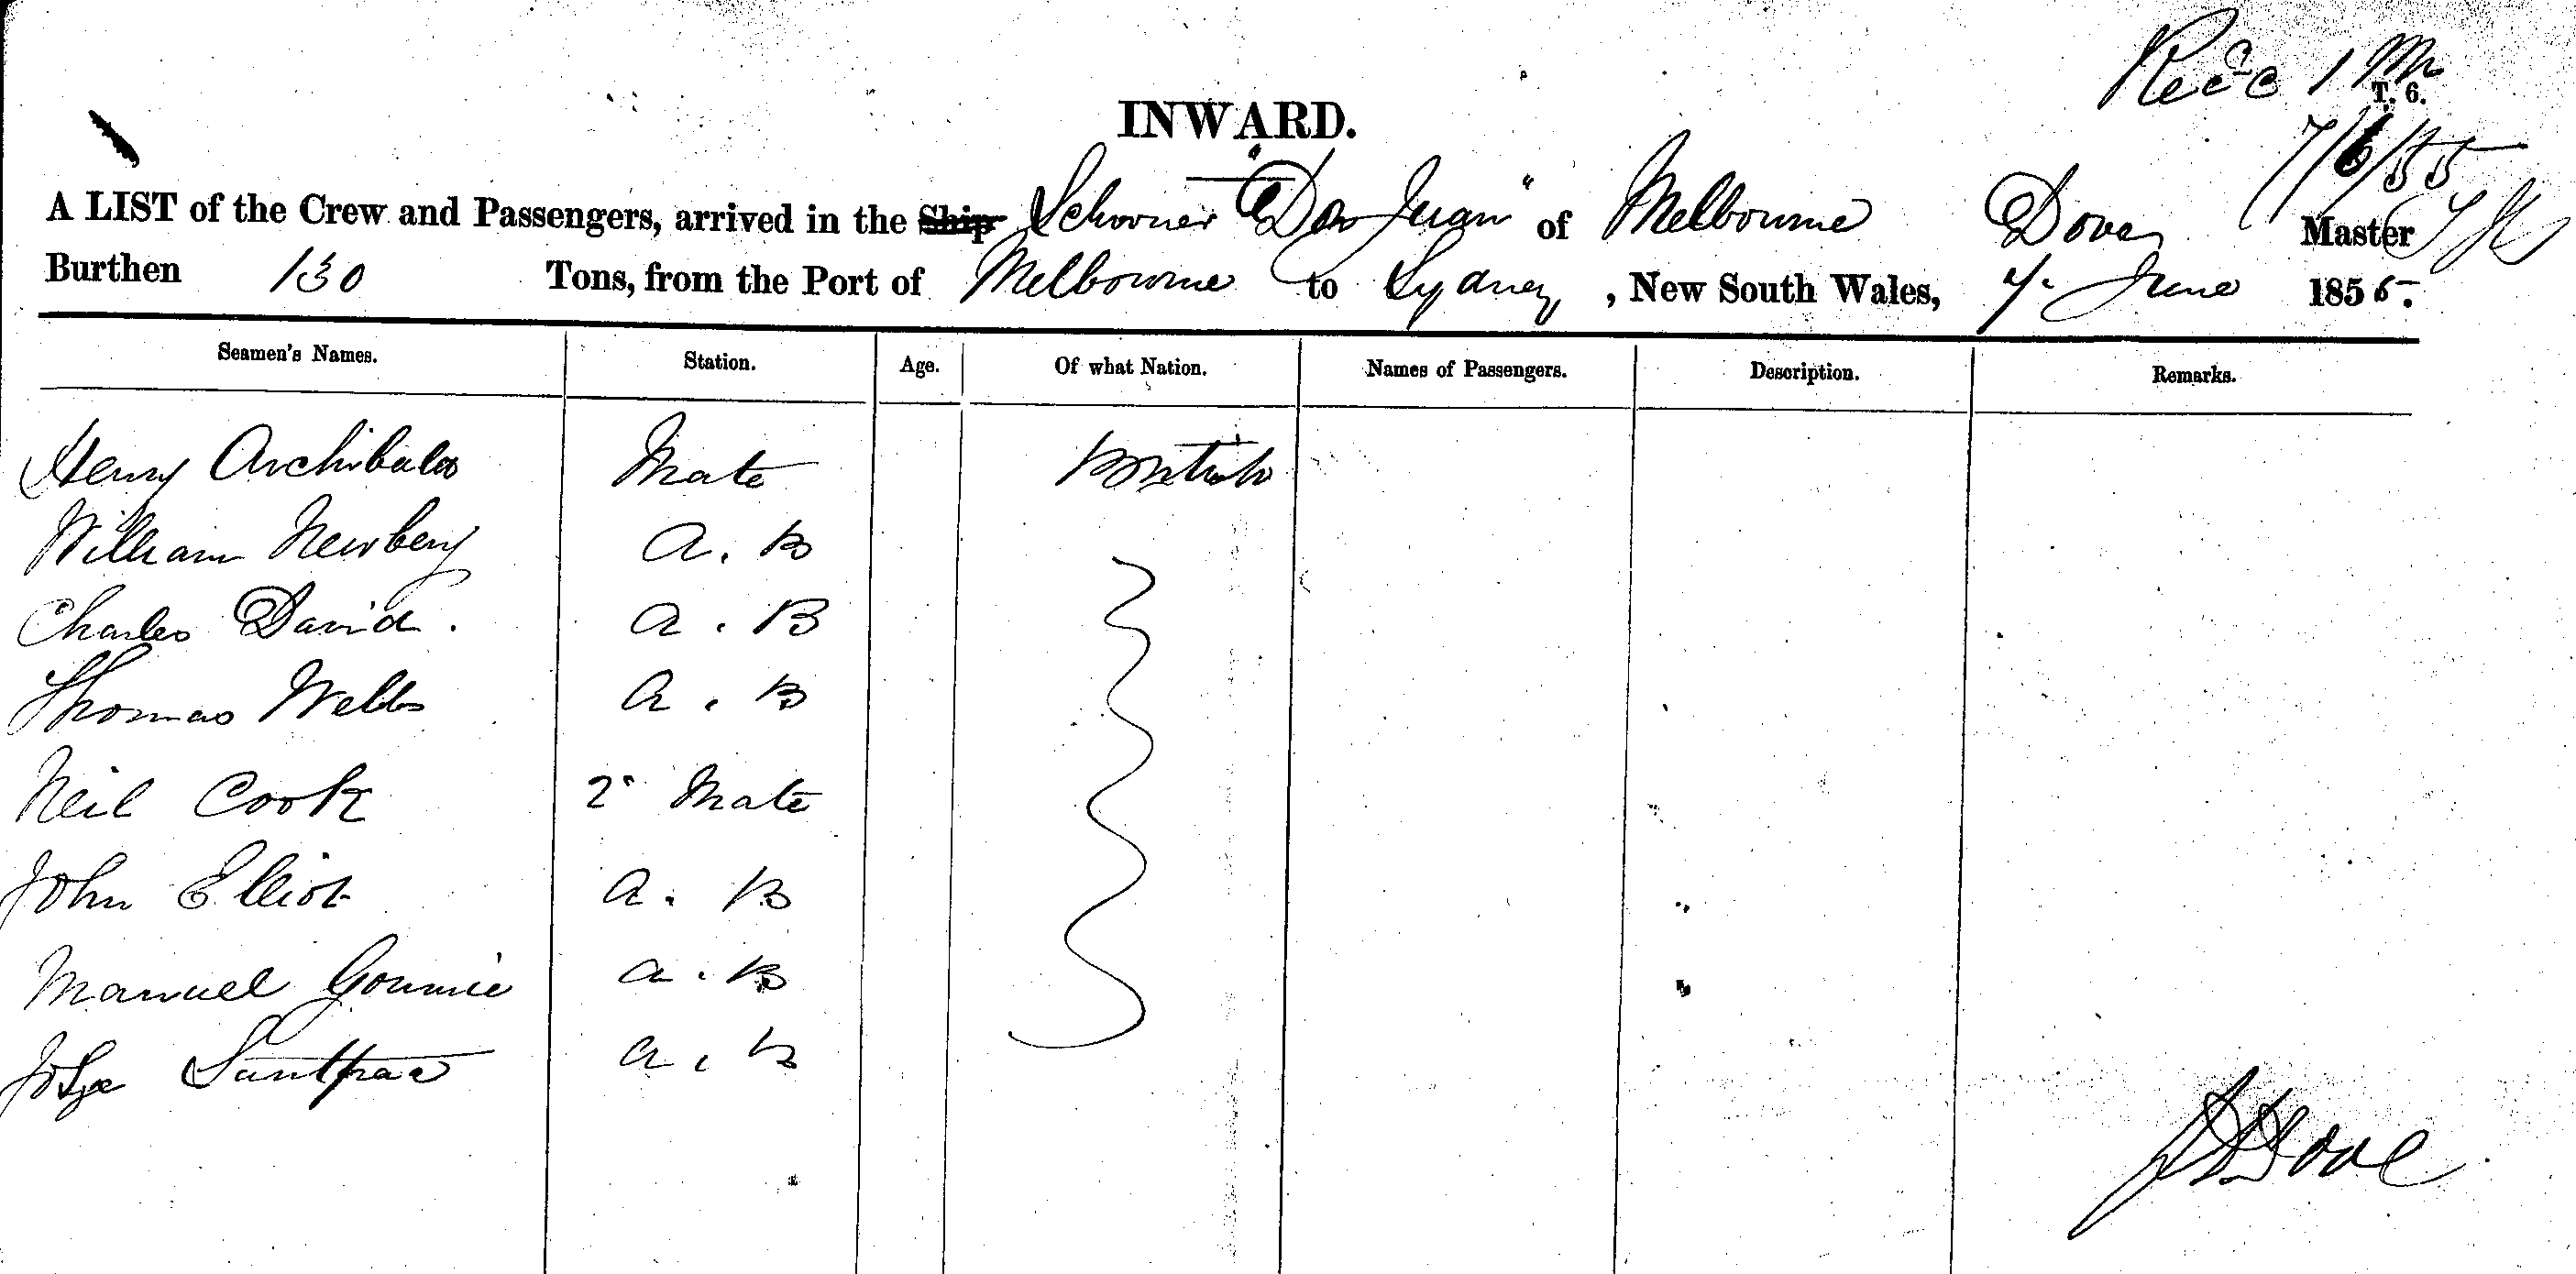 Recd 1 M
T. 6.
INWARD.
7/6/55
A LIST of the Crew and Passengers, arrived in the Ship Schooner "Don Juan" of Melbourne Dove Master
Burthen 130 Tons, from the Port of Melbourne to Sydney, New South Wales, 7. June 1855.
Seamen's Names. Station. Age. Of what Nation. Names of Passengers. Description. Remarks.
Henry Archibald Mate British
William Newbery A. B
Charles David. A. B
Thomas Webb A. B
Neil Cook 2d Mate
John Elliot A. B
Manuel A. B
A. B
Dove